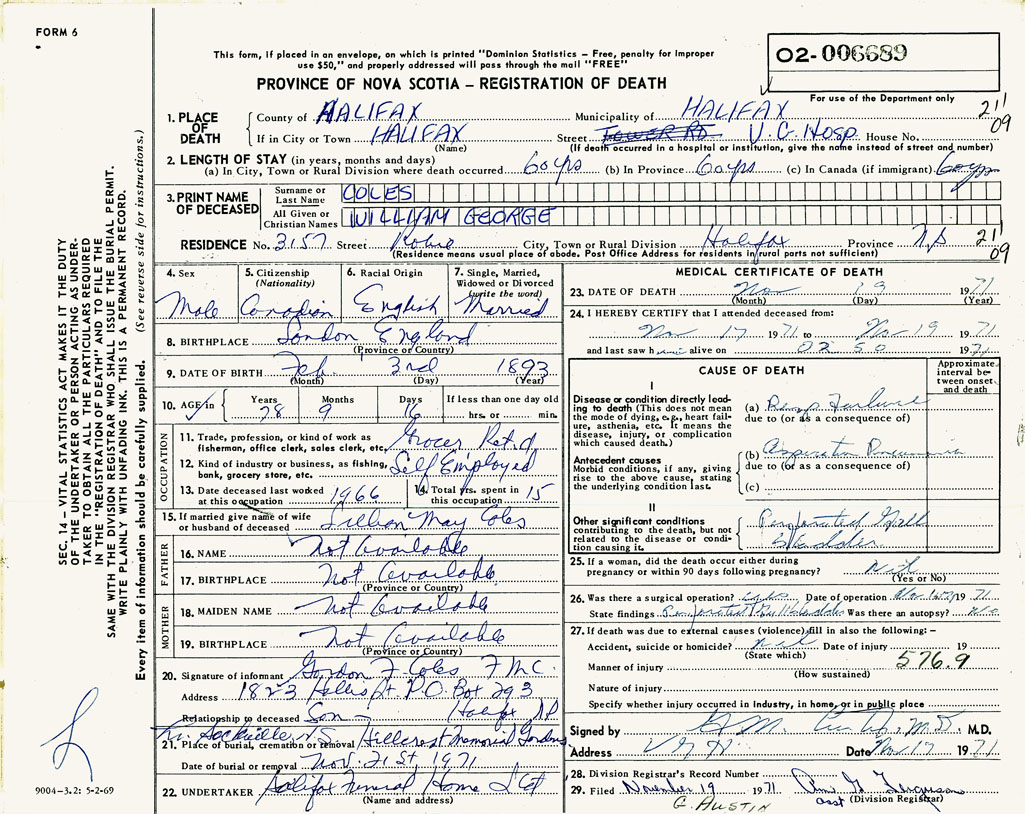 FORM 6
This form, if placed in an envelope, on which is printed "Dominion Statistics – Free, penalty for improper
use $50," and properly addressed will pass through the mail "FREE"
O2-006689
For use of the Department only
PROVINCE OF NOVA SCOTIA – REGISTRATION OF DEATH
1. PLACE OF DEATH
County of HALIFAX Municipality of HALIFAX 211
09
If in City or Town HALIFAX Street TOWER RD V.G. HOSP. House No.
(Name) (If death occurred in a hospital or institution, give the name instead of street and number)
2. LENGTH OF STAY (in years, months and days)
(a) In City, Town or Rural Division where death occurred 60 yrs (b) In Province 60 yrs (c) In Canada (if immigrant) 60 yrs
3. PRINT NAME OF DECEASED
Surname or Last Name COLES
All Given or Christian Names WILLIAM GEORGE
RESIDENCE No. 3157 Street City, Town or Rural Division Halifax Province N.S 211
09
(Residence means usual place of abode. Post Office Address for residents in rural parts not sufficient)
4. Sex Male
5. Citizenship (Nationality) Canadian
6. Racial Origin English
7. Single, Married, Widowed or Divorced (write the word) Married
8. BIRTHPLACE London England
(Province or Country)
9. DATE OF BIRTH Feb. 3rd 1893
(Month) (Day) (Year)
10. AGE in Years Months Days If less than one day old
78 9 16 hrs. or min.
OCCUPATION
11. Trade, profession, or kind of work as fisherman, office clerk, sales clerk, etc. Grocer Ret'd
12. Kind of industry or business, as fishing, bank, grocery store, etc. Self Employed
13. Date deceased last worked at this occupation 1966
14. Total yrs. spent in this occupation 15
15. If married give name of wife or husband of deceased Lillian May Coles
FATHER
16. NAME Not Available
17. BIRTHPLACE Not Available
(Province or Country)
MOTHER
18. MAIDEN NAME Not Available
19. BIRTHPLACE Not Available
(Province or Country)
20. Signature of informant Gordon F. Coles
Address 1823 Hollis St. P.O. Box 293
Halifax NS
Relationship to deceased Son
Lr. Sackville N.S.
21. Place of burial, cremation or removal Hillcrest Memorial Gardens
Date of burial or removal Nov. 21st, 1971
22. UNDERTAKER Halifax Funeral Home Ltd
(Name and address)
MEDICAL CERTIFICATE OF DEATH
23. DATE OF DEATH Nov 19 1971
(Month) (Day) (Year)
24. I HEREBY CERTIFY that I attended deceased from:
Nov 17 1971 to Nov 19 1971
and last saw him alive on 0250 1971
CAUSE OF DEATH
Approximate interval between onset and death
I
Disease or condition directly leading to death (This does not mean the mode of dying, e.g., heart failure, asthenia, etc. It means the disease, injury, or complication which caused death.)
(a) Resp. Failure
due to (or as a consequence of)
Antecedent causes
Morbid conditions, if any, giving rise to the above cause, stating the underlying condition last.
(b) Aspiration Pneumonia
due to (or as a consequence of)
(c)
II
Other significant conditions contributing to the death, but not related to the disease or condition causing it.
Perforated Gall
Bladder
25. If a woman, did the death occur either during pregnancy or within 90 days following pregnancy? Nil
(Yes or No)
26. Was there a surgical operation? yes Date of operation Nov 1971
State findings Perforated Gall Bladder Was there an autopsy? No
27. If death was due to external causes (violence) fill in also the following: –
Accident, suicide or homicide? nil Date of injury 19
(State which)
Manner of injury 576.9
(How sustained)
Nature of injury
Specify whether injury occurred in industry, in home, or in public place
Signed by M.D.
Address V G H Date Nov 17 1971
28. Division Registrar's Record Number
29. Filed November 19 1971 Wm. G. Ferguson
G. AUSTIN asst (Division Registrar)
SEC. 14 – VITAL STATISTICS ACT MAKES IT THE DUTY
OF THE UNDERTAKER OR PERSON ACTING AS UNDER-
TAKER TO OBTAIN ALL THE PARTICULARS REQUIRED
IN THE "REGISTRATION OF DEATH" AND TO FILE THE
SAME WITH THE DIVISION REGISTRAR WHO SHALL ISSUE THE BURIAL PERMIT.
WRITE PLAINLY WITH UNFADING INK. THIS IS A PERMANENT RECORD.
Every item of information should be carefully supplied. (See reverse side for instructions.)
9004-3.2: 5-2-69